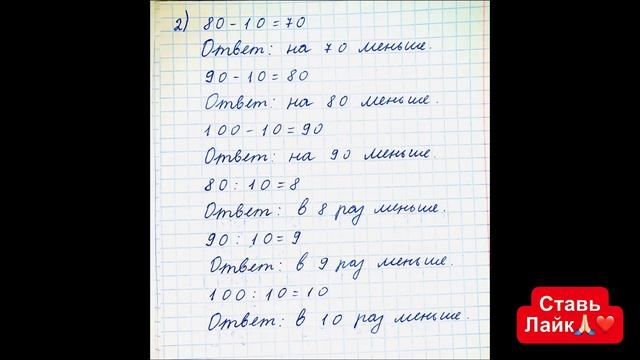 2) 80-10=70
Ответ: на 70 меньше.
90-10=80
Ответ: на 80 меньше.
100-10=90
Ответ: на 90 меньше.
80:10=8
Ответ: в 8 раз меньше.
90:10=9
Ответ: в 9 раз меньше.
100:10=10
Ответ: в 10 раз меньше.
Ставь
Лайк🙏🏻❤️